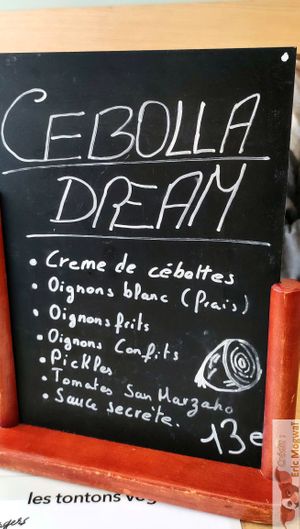 CEBOLLA
DREAM
• Creme de cébottes
• Oignons blanc (frais)
• Oignons frits
• Oignons Confits
• Pickles
• Tomates San Marzano
• Sauce secrète.
13e
les tontons
Crédits :
Eric Mogwaï